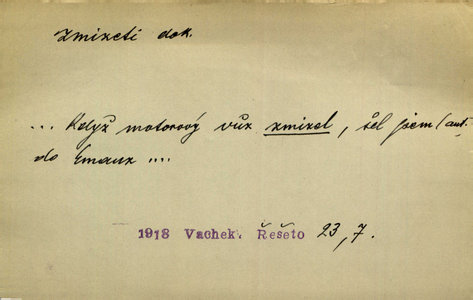 Zmizeti dok.
... Když motorový vůz zmizel, šel jsem (aut.
do Emauz ....
1918 Vachek. Řešeto 23, 7.